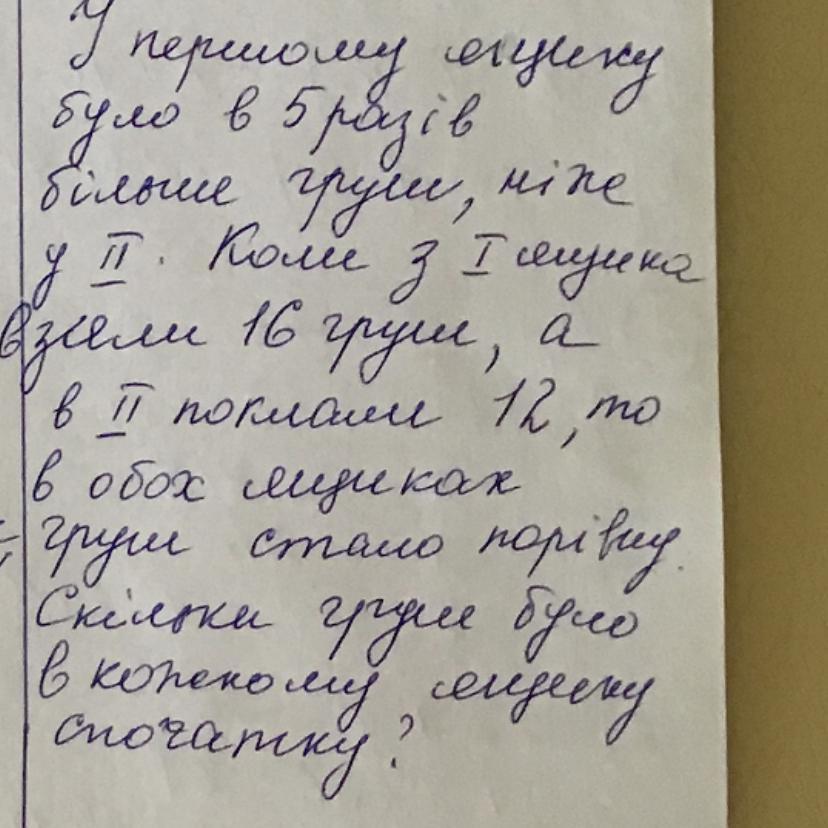 У першому ящику
було в 5 разів
більше груш, ніж
у II. Коли з I ящика
взяли 16 груш, а
в II поклали 12, то
в обох ящиках
груш стало порівну.
Скільки груш було
в кожному ящику
спочатку?